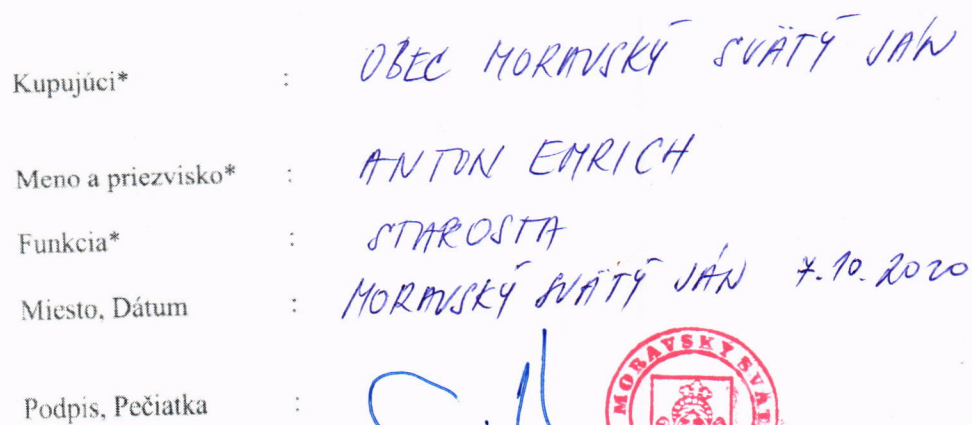 Kupujúci* : OBEC MORAVSKÝ SVÄTÝ JÁN
Meno a priezvisko* : ANTON EMRICH
Funkcia* : STAROSTA
Miesto, Dátum : MORAVSKÝ SVÄTÝ JÁN 7.10.2020
Podpis, Pečiatka :
MORAVSKÝ SVÄT